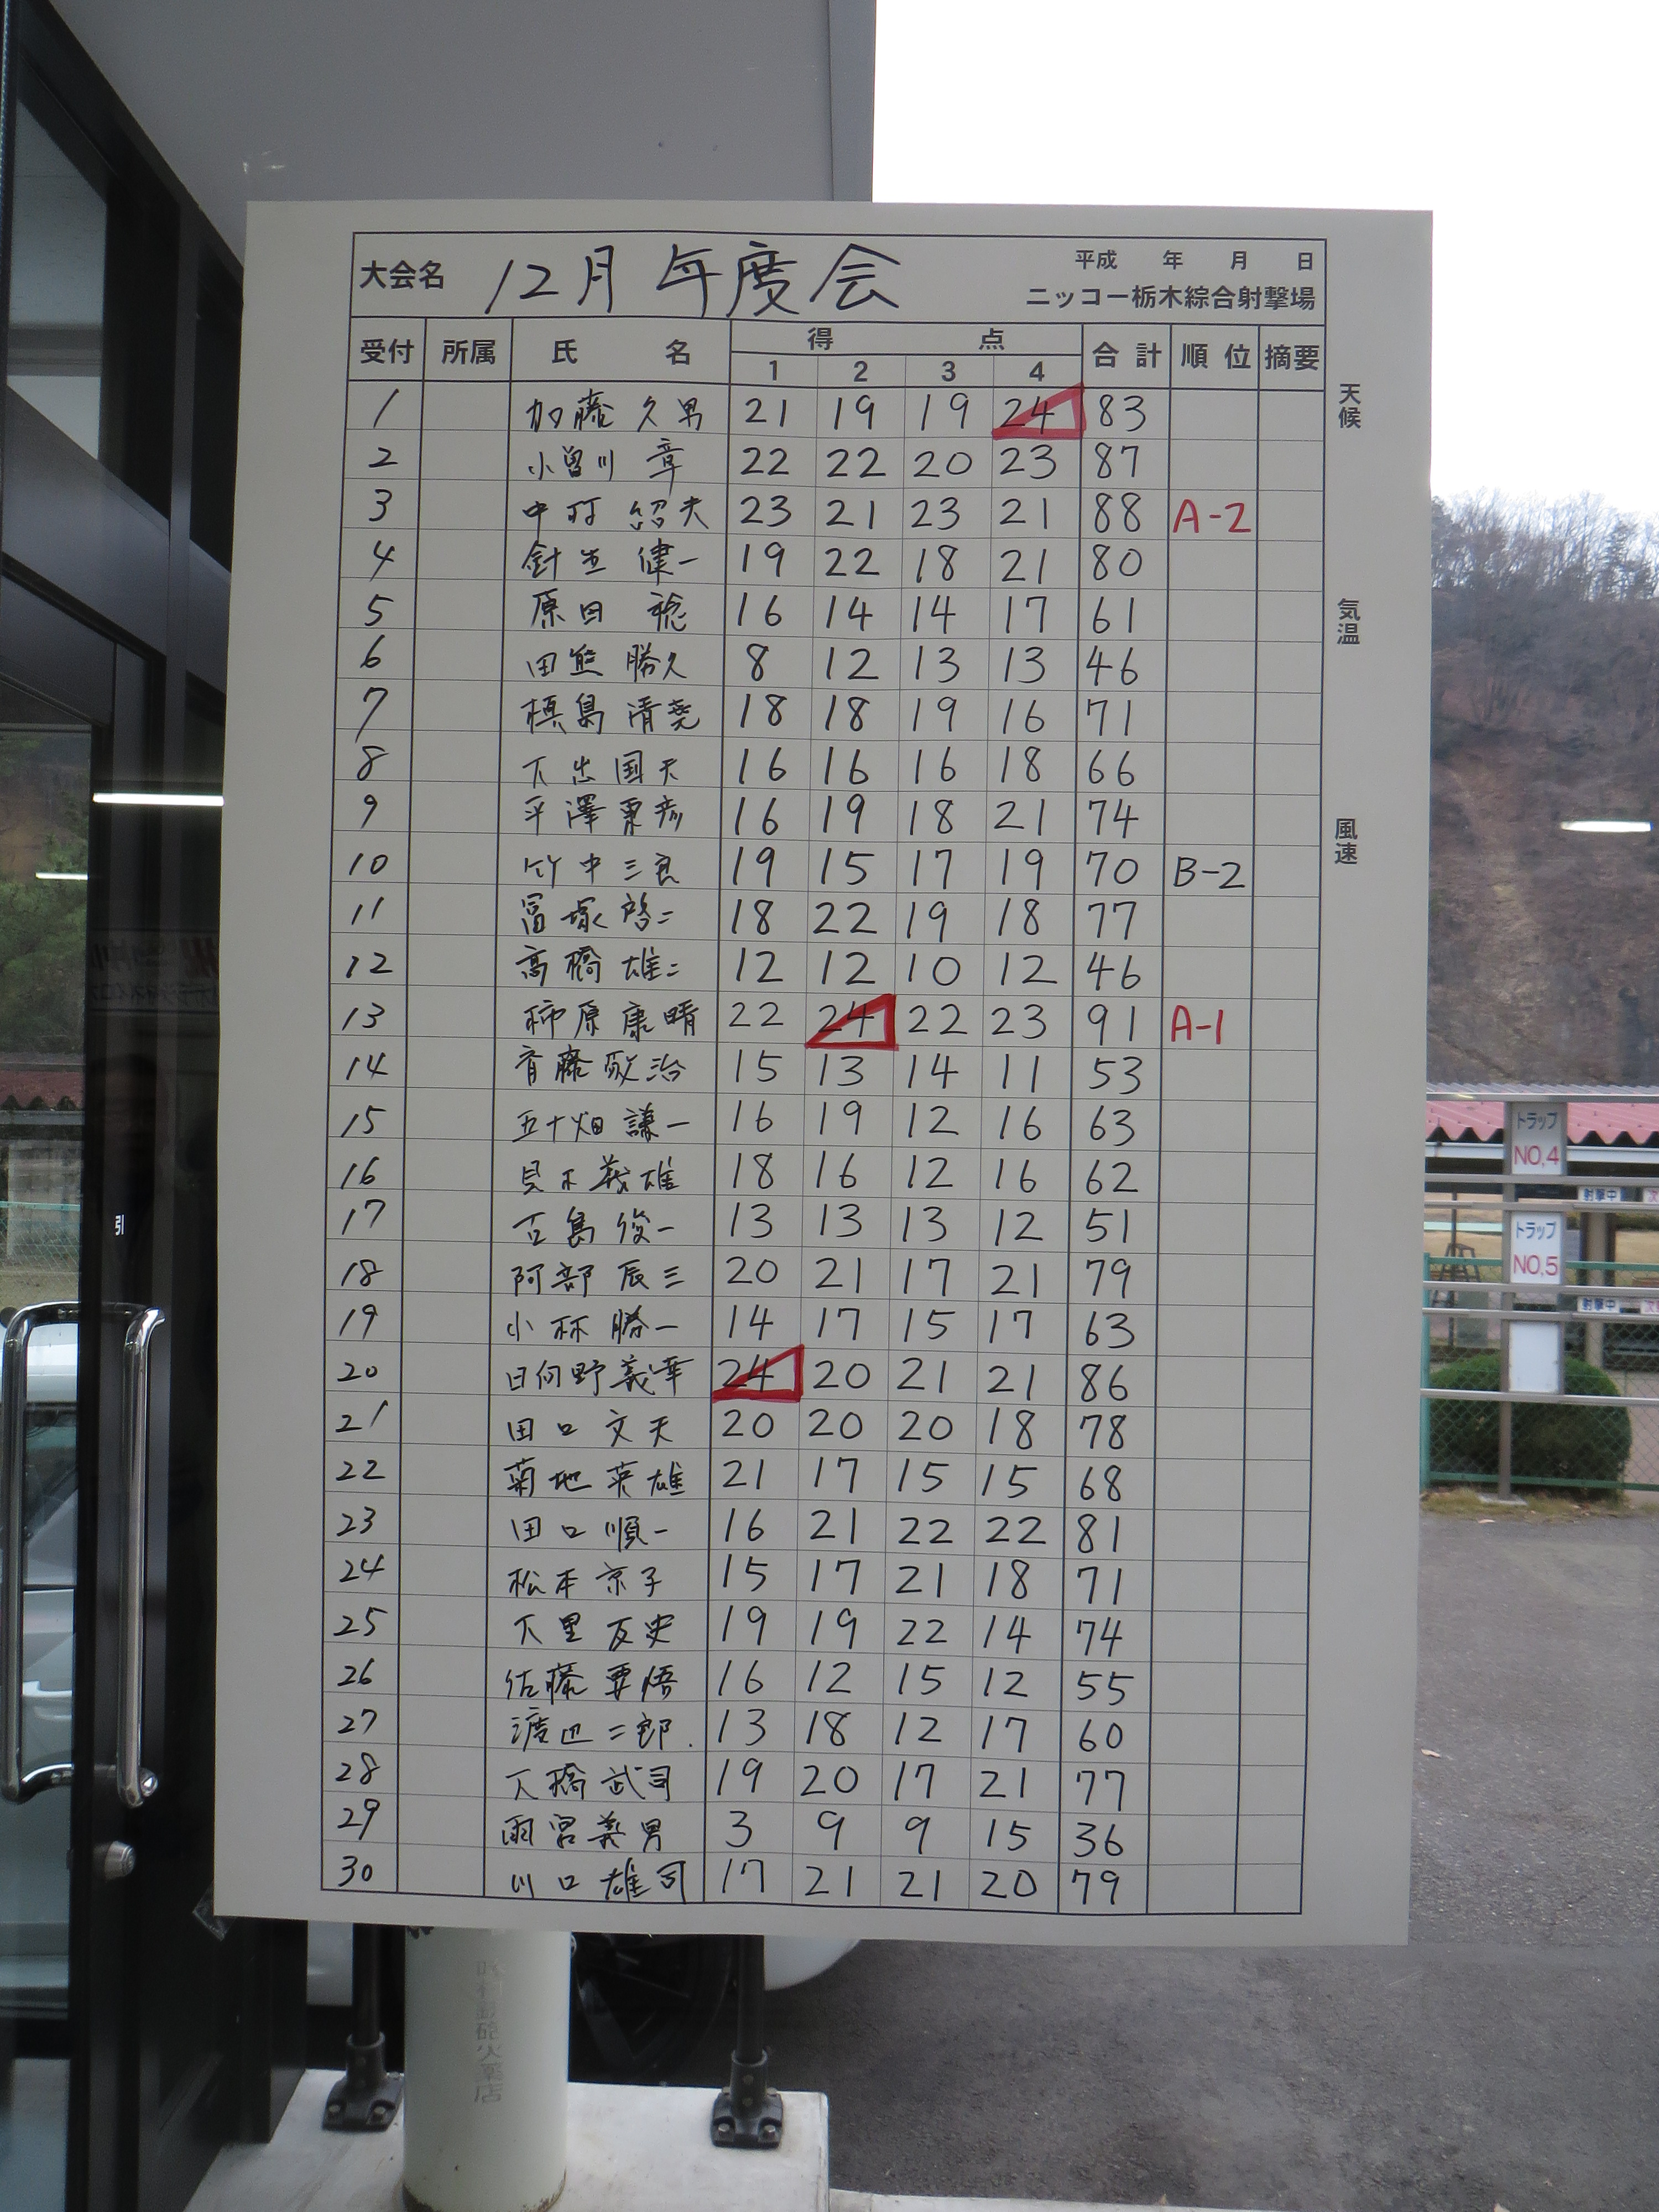 大会名 12月 年度会 平成 年 月 日
ニッコー栃木綜合射撃場
受付 所属 氏 名 得 点 合計 順位 摘要
1 2 3 4
1 加藤 久男 21 19 19 24 83
2 小曽川 章 22 22 20 23 87
3 中村 紹夫 23 21 23 21 88 A-2
4 針生 健一 19 22 18 21 80
5 原田 稔 16 14 14 17 61
6 田熊 勝久 8 12 13 13 46
7 槙島 清堯 18 18 19 16 71
8 国夫 16 16 16 18 66
9 平澤 16 19 18 21 74
10 竹中三良 19 15 17 19 70 B-2
11 冨塚 啓二 18 22 19 18 77
12 高橋 雄二 12 12 10 12 46
13 柿原 康晴 22 24 22 23 91 A-1
14 斉藤 敬治 15 13 14 11 53
15 五十畑 謙一 16 19 12 16 63
16 義雄 18 16 12 16 62
17 俊一 13 13 13 12 51
18 阿部 辰三 20 21 17 21 79
19 小林 勝一 14 17 15 17 63
20 日向野 義華 24 20 21 21 86
21 田口 文夫 20 20 20 18 78
22 菊地 英雄 21 17 15 15 68
23 田口 順一 16 21 22 22 81
24 松本 京子 15 17 21 18 71
25 大里 友史 19 19 22 14 74
26 佐藤 要悟 16 12 15 12 55
27 渡辺 二郎 13 18 12 17 60
28 大橋 武司 19 20 17 21 77
29 雨宮 義男 3 9 9 15 36
30 川口 雄司 17 21 21 20 79
天候
気温
風速
引
トラップ
NO,4
射撃中
トラップ
NO,5
射撃中